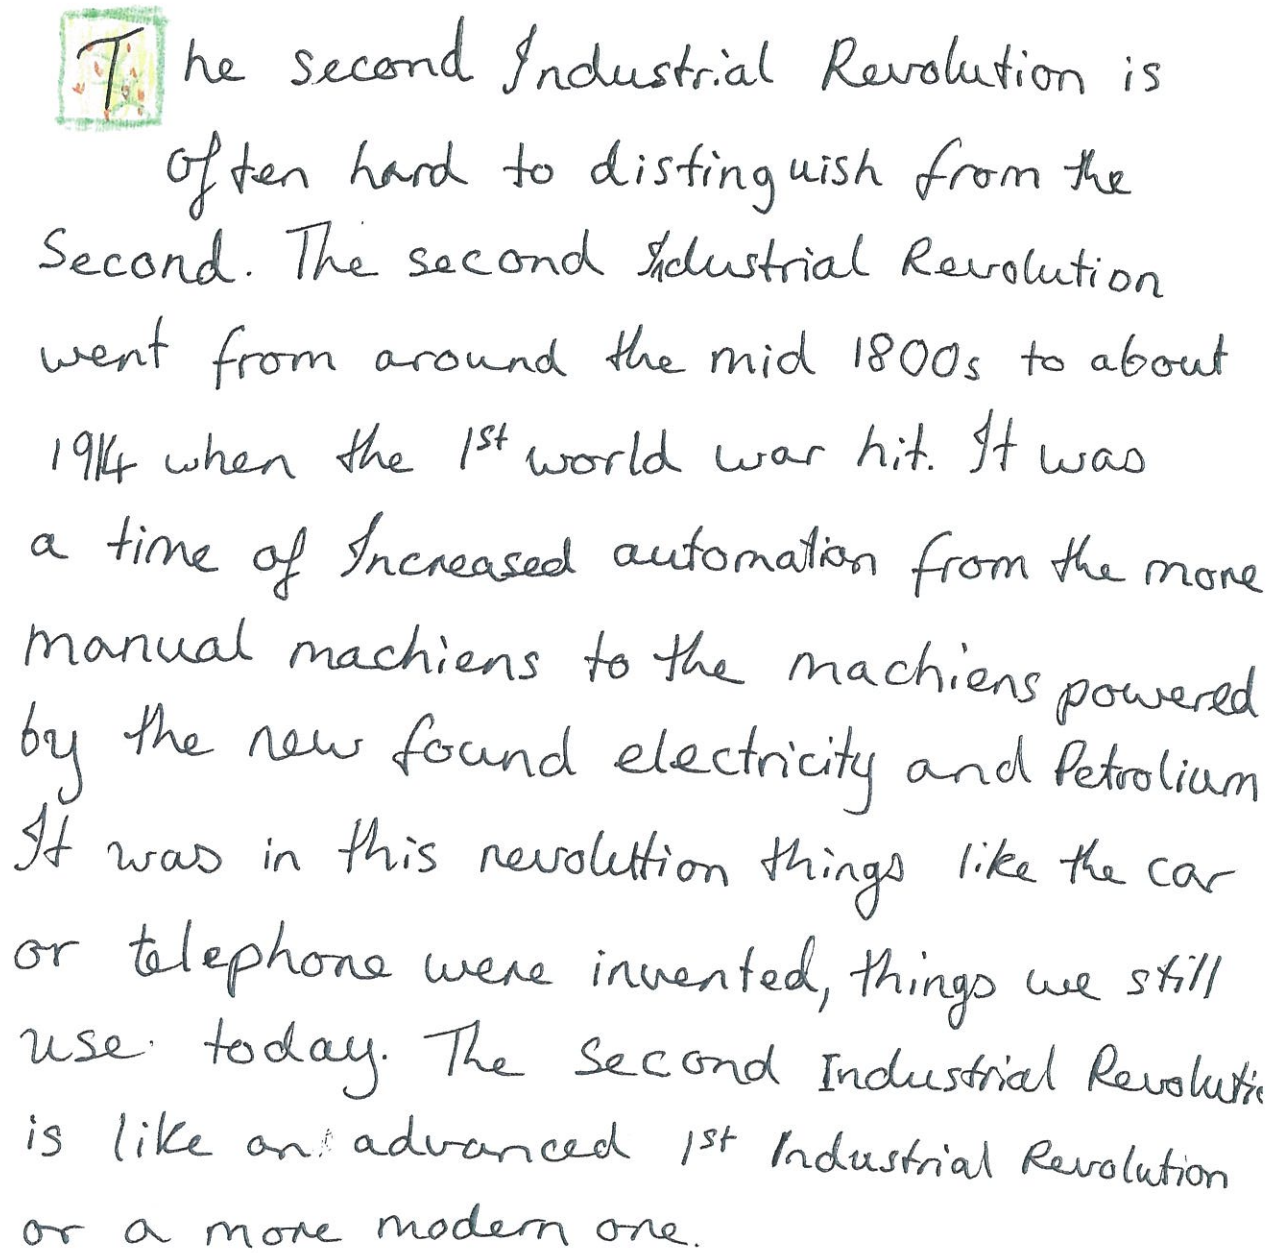 The second Industrial Revolution is
often hard to distinguish from the
Second. The second Industrial Revolution
went from around the mid 1800s to about
1914 when the 1st world war hit. It was
a time of Increased automation from the more
manual machiens to the machiens powered
by the new found electricity and Petrolium
It was in this revoluttion things like the car
or telephone were invented, things we still
use today. The Second Industrial Revolutio
is like an advanced 1st Industrial Revolution
or a more modern one.